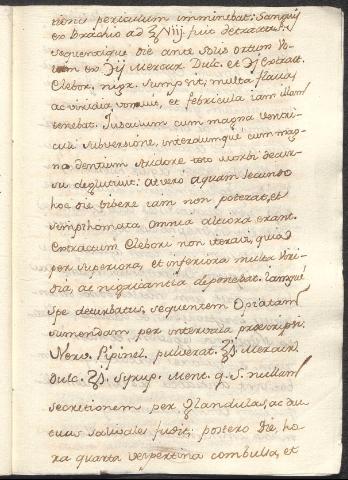 tionis periculum imminebat: Sanguis
ex brachio ad ℥Viij. fuit detractus.
sequentique die ante solis ortum Bo-
lum ex ℈ij Mercur. Dulc. et ℈j Extract.
Elebor. nigr. sumpsit; multa flava,
ac viridia, vomuit, et febricula iam illam
tenebat. Iusculum cum magna ventri-
culi subversione, interdumque cum mag-
na dentium stridore toto morbi decur-
su deglutiut: at verò aquam secundo
hoc die bibere iam non poterat, et
simphomata omnia altiora erant.
Extractum Elebori non iteravi, quia
per superiora, et inferiora multa viri-
dia, ac nigricantia deponebat. Iamque
spe deturbatus, sequentem Opiatam
sumendam per intervalla praescripsi.
Nerv. Pipinel. pulverat. ℥ß. Mercur.
Dulc. ℥ß. Syrup. Ment. q. S. nullam
secretionem per glandulas, ac duc-
tus salivales fudit; postero die, ho-
ra quarta vespertina combulsa, et